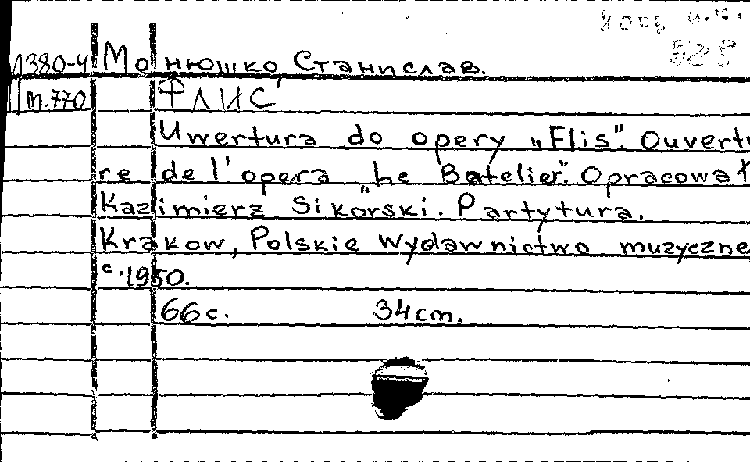 380-4 Монюшко, Станислав.
m.770 ФЛИС
Uwertura do opery „Flis". Ouvertu
re de l'opera „Le Batelier". Opracował
Kazimierz Sikorski. Partytura.
Krakow, Polskie Wydawnictwo muzyczne
c. 1950.
66 c. 34 cm.